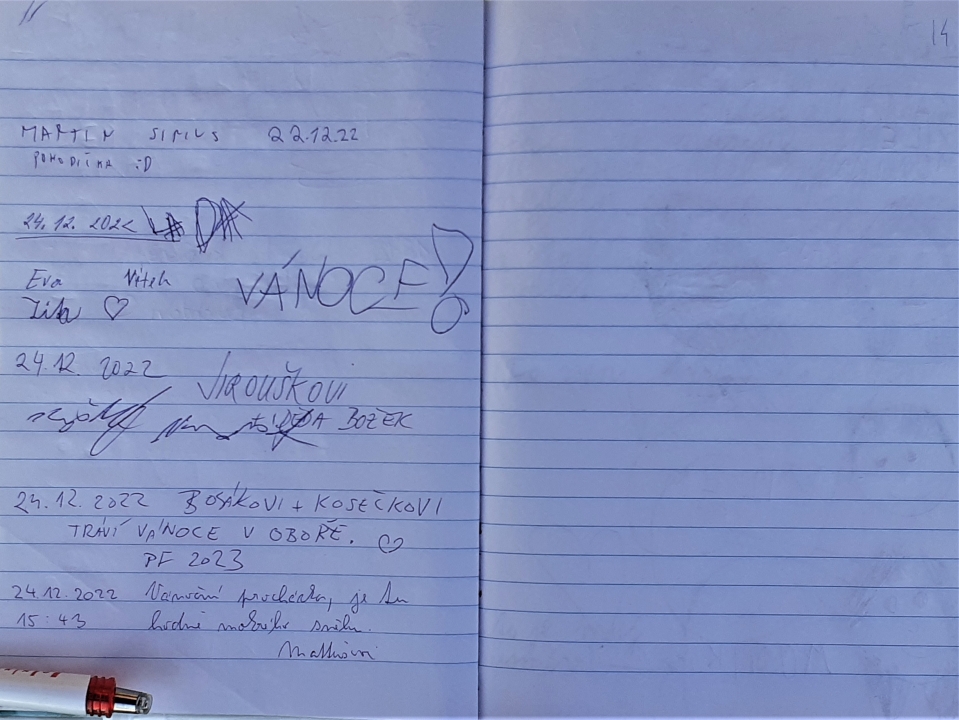 14
MARTIN SIRIUS 22.12.22
POHODIČKA :D
24.12.2022
Eva Vítek
Zita ♡
VÁNOCE!
24.12. 2022 JIROUŠKOVI
DĚDA BOŽEK
24.12.2022 BOSÁKOVI + KOSEČKOVI
TRÁVÍ VÁNOCE V OBOŘE. ♡
PF 2023
24.12.2022 Vánoční procházka, je tu
15:43 hodně mokrého sněhu.